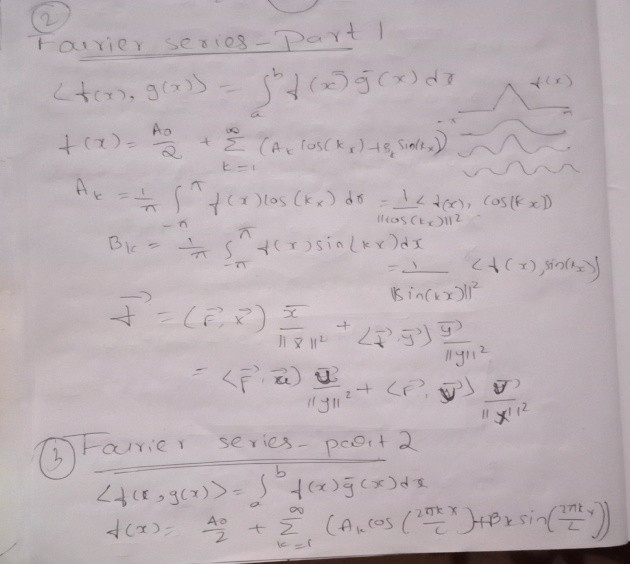 2
Fourier series - Part 1
<f(x), g(x)> = ∫_a^b f(x) ḡ(x) dx
f(x)
f(x) = A₀/2 + Σ_{k=1}^{∞} (A_k cos(kx) + B_k sin(kx))
-π π
A_k = 1/π ∫_{-π}^{π} f(x) cos(kx) dx = 1/||cos(kx)||² <f(x), cos(kx)>
B_k = 1/π ∫_{-π}^{π} f(x) sin(kx) dx
= 1/||sin(kx)||² <f(x), sin(kx)>
f⃗ = (f⃗, x⃗) x⃗/||x||² + <f⃗, y⃗> y⃗/||y||²
= <f⃗, u⃗) u⃗/||y||² + <f⃗, v⃗> v⃗/||x||²
3 Fourier series - part 2
<f(x, g(x)> = ∫_a^b f(x) ḡ(x) dx
f(x) = A₀/2 + Σ_{k=1}^{∞} (A_k cos(2πkx/L) + B_k sin(2πkx/L))